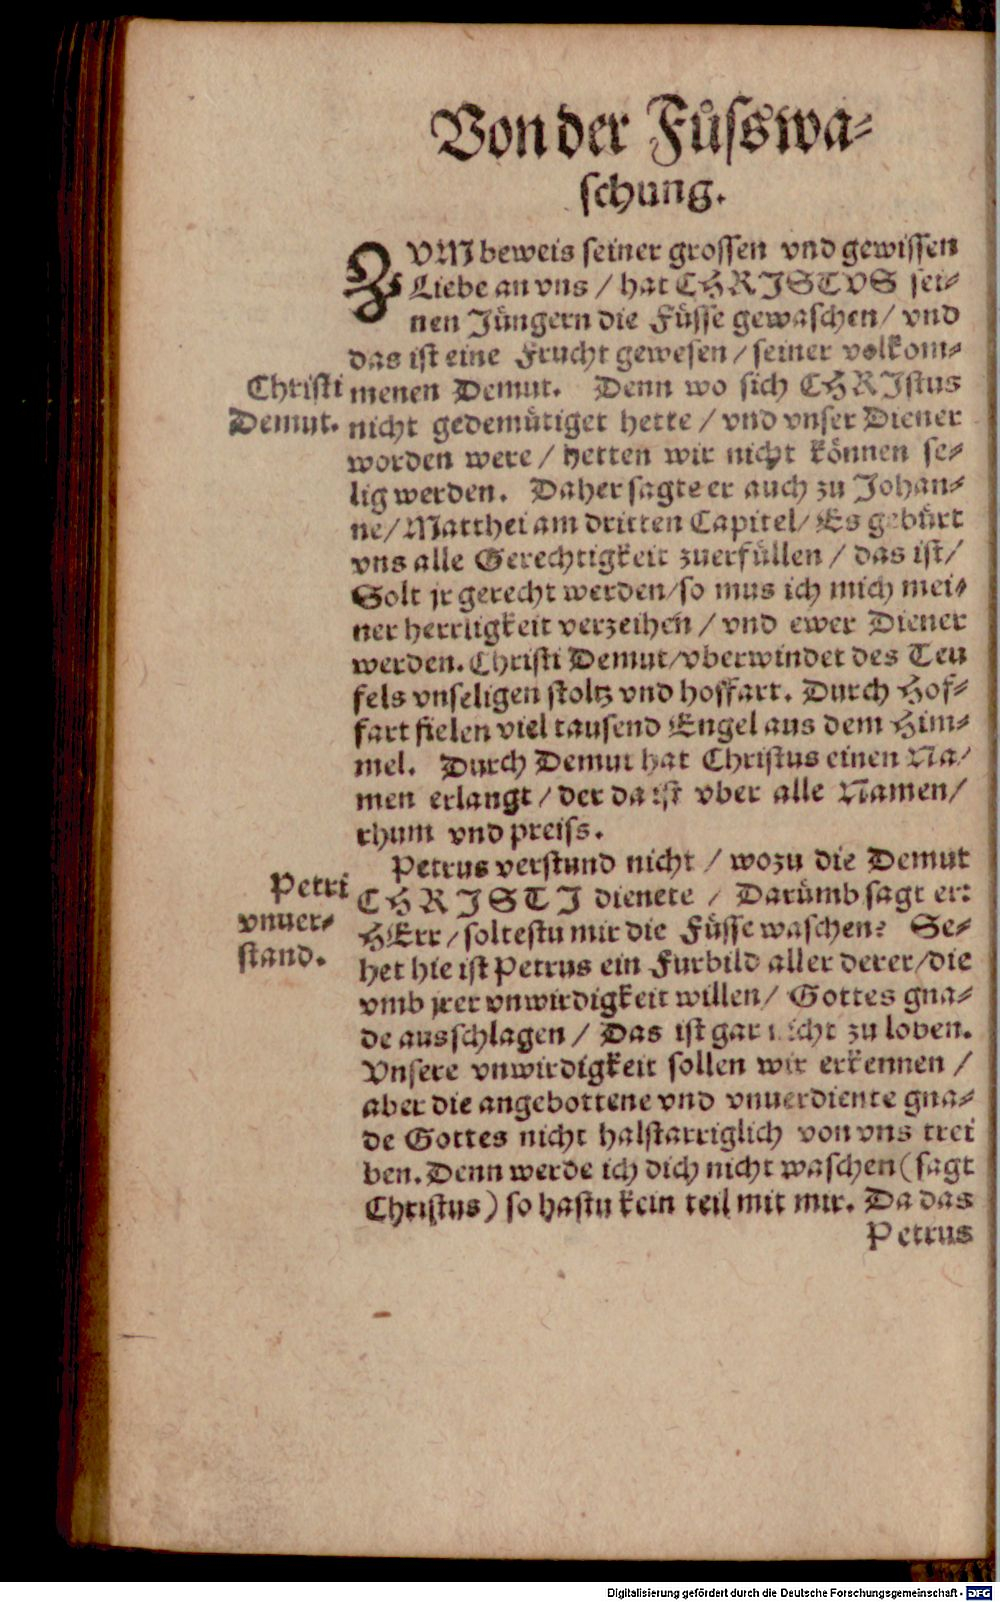 Von der Fuͤſswa⸗
ſchung.
ZVM beweis ſeiner groſſen vnd gewiſſen
Liebe an vns / hat CHRISTVS ſei⸗
nen Juͤngern die Fuͤſſe gewaſchen / vnd
das iſt eine Frucht geweſen / ſeiner volkom⸗
Chriſti
Demut.
menen Demut. Denn wo ſich CHRIſtus
nicht gedemuͤtiget hette / vnd vnſer Diener
worden were / hetten wir nicht koͤnnen ſe⸗
lig werden. Daher ſagte er auch zu Johan⸗
ne / Matthei am dritten Capitel / Es gebuͤrt
vns alle Gerechtigkeit zuerfuͤllen / das iſt /
Solt jr gerecht werden / ſo mus ich mich mei⸗
ner herrligkeit verzeihen / vnd ewer Diener
werden. Chriſti Demut / vberwindet des Teu
fels vnſeligen ſtoltz vnd hoffart. Durch Hof⸗
fart fielen viel tauſend Engel aus dem Him⸗
mel. Durch Demut hat Chriſtus einen Na⸗
men erlangt / der da iſt vber alle Namen /
rhum vnd preiſs.
Petrus verſtund nicht / wozu die Demut
Petri
vnuer⸗
ſtand.
CHRISTI dienete / Daruͤmb ſagt er:
HErr / ſolteſtu mir die Fuͤſſe waſchen? Se⸗
het hie iſt Petrus ein Furbild aller derer / die
vmb jrer vnwirdigkeit willen / Gottes gna⸗
de ausſchlagen / Das iſt gar nicht zu loben.
Vnſere vnwirdigkeit ſollen wir erkennen /
aber die angebottene vnd vnuerdiente gna⸗
de Gottes nicht halſtarriglich von vns trei
ben. Denn werde ich dich nicht waſchen (ſagt
Chriſtus) ſo haſtu kein teil mit mir. Da das
Petrus
Digitalisierung gefördert durch die Deutsche Forschungsgemeinschaft - DFG